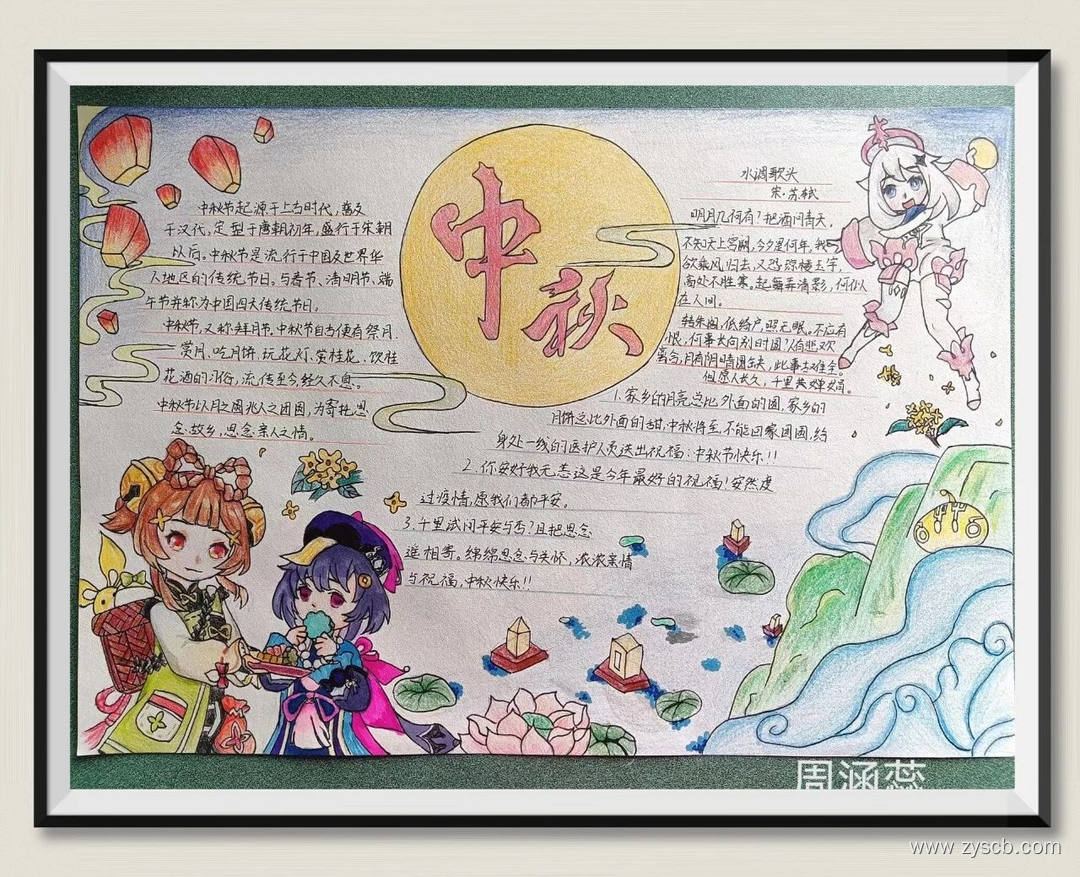 中秋
中秋节起源于上古时代，普及
于汉代，定型于唐朝初年，盛行于宋朝
以后。中秋节是流行于中国及世界华
人地区的传统节日。与春节、清明节、端
午节并称为中国四大传统节日。
中秋节，又称拜月节，中秋节自古便有祭月、
赏月、吃月饼、玩花灯、赏桂花、饮桂
花酒的习俗，流传至今经久不息。
中秋节以月之圆兆人之团圆，为寄托思
念故乡，思念亲人之情。
水调歌头
宋·苏轼
明月几何有？把酒问青天，
不知天上宫阙，今夕是何年，我
欲乘风归去，又恐琼楼玉宇，
高处不胜寒。起舞弄清影，何似
在人间。
转朱阁，低绮户，照无眠。不应有
恨，何事长向别时圆？人有悲欢
离合，月有阴晴圆缺，此事古难全。
但愿人长久，千里共婵娟。
1.家乡的月亮总比外面的圆，家乡的
月饼总比外面的甜，中秋将至，不能回家团圆，给
身处一线的医护人员送出祝福：中秋节快乐！！
2.你安好我无恙这是今年最好的祝福！安然度
过疫情，愿我们都平安。
3.千里试问平安与否？且把思念
遥相寄。绵绵思念与关怀，浓浓亲情
与祝福，中秋快乐！！
周涵蕊
www.zyscb.com